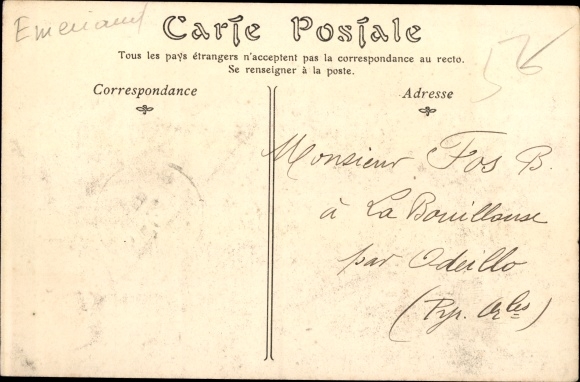 Carte Postale
Tous les pays étrangers n'acceptent pas la correspondance au recto.
Se renseigner à la poste.
Correspondance
Adresse
Monsieur Fos B.
à La Bouillouse
par Odeillo
(Pyr. Or^les)